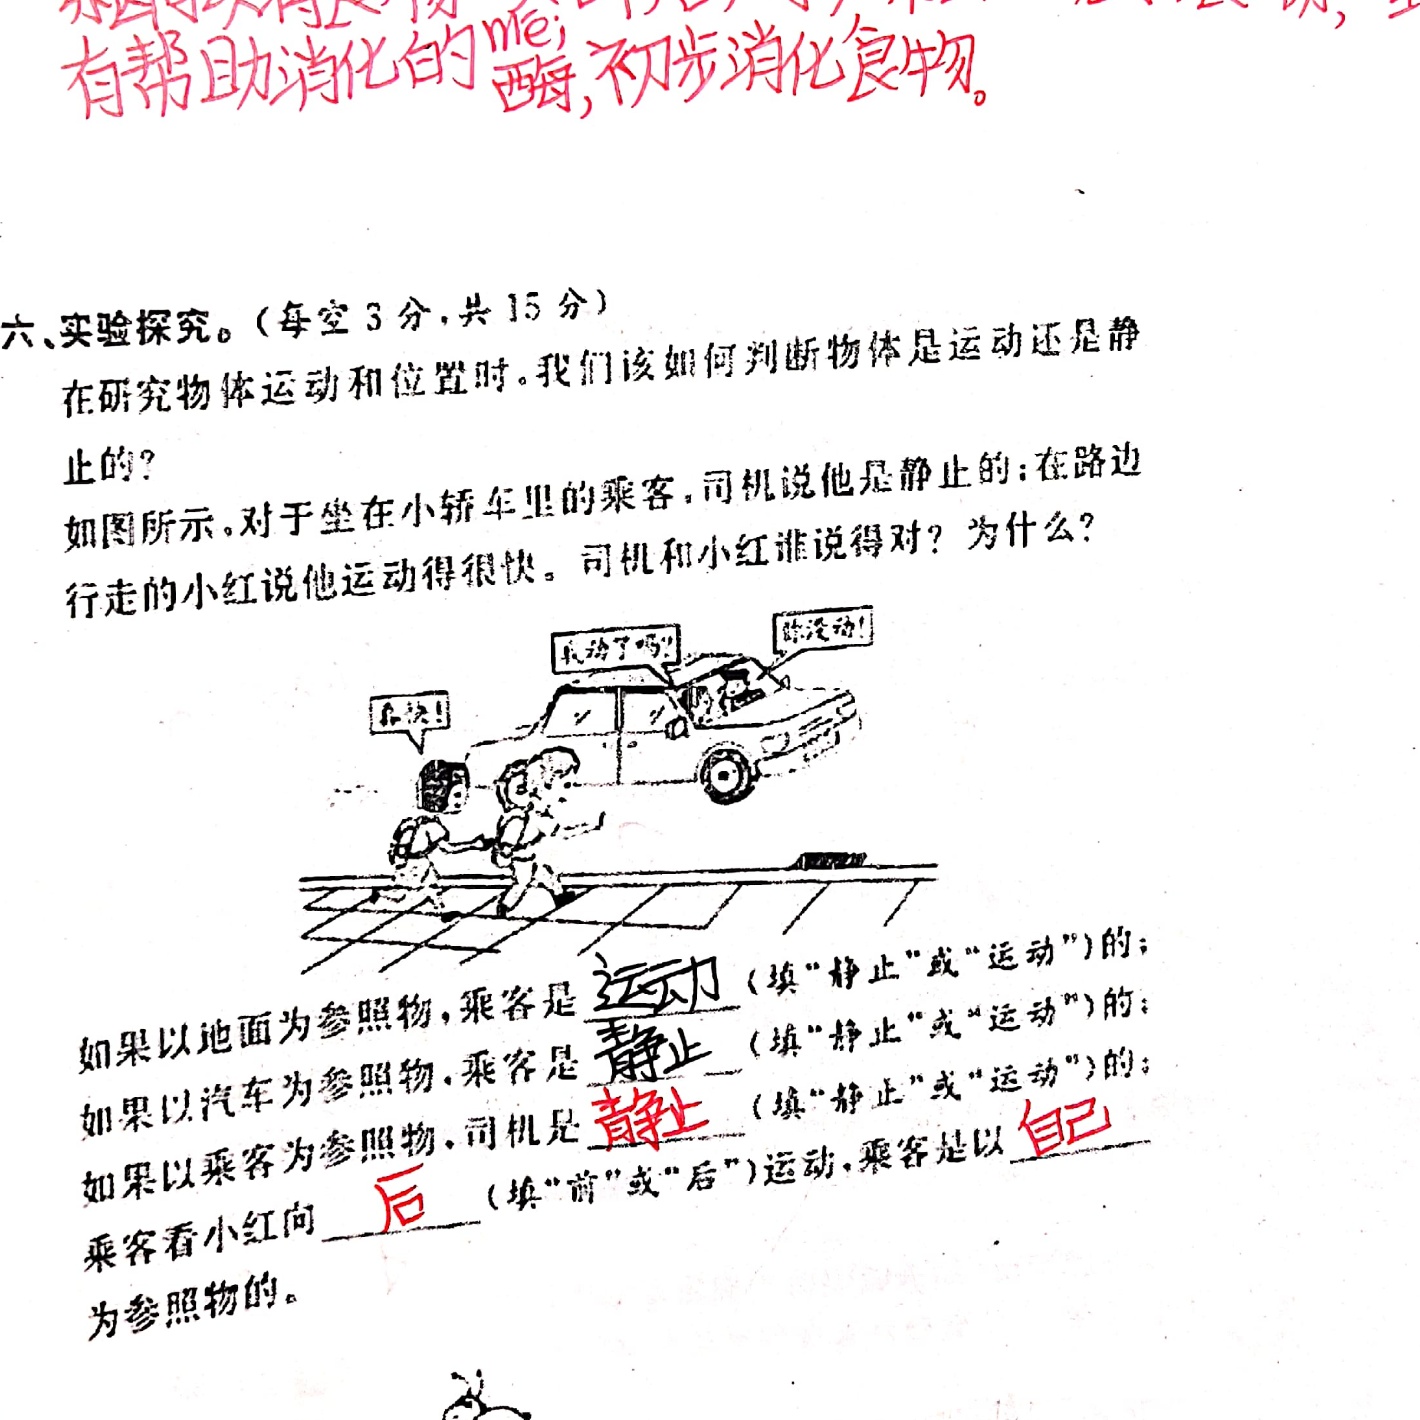 有帮助消化的酶,初步消化食物。
mei
六、实验探究。(每空3分,共15分)
在研究物体运动和位置时。我们该如何判断物体是运动还是静
止的?
如图所示。对于坐在小轿车里的乘客,司机说他是静止的;在路边
行走的小红说他运动得很快。司机和小红谁说得对?为什么?
我动了吗?
你没动!
真快!
如果以地面为参照物,乘客是运动(填“静止”或“运动”)的;
如果以汽车为参照物,乘客是静止(填“静止”或“运动”)的;
如果以乘客为参照物,司机是静止(填“静止”或“运动”)的;
乘客看小红向后(填“前”或“后”)运动,乘客是以自己
为参照物的。